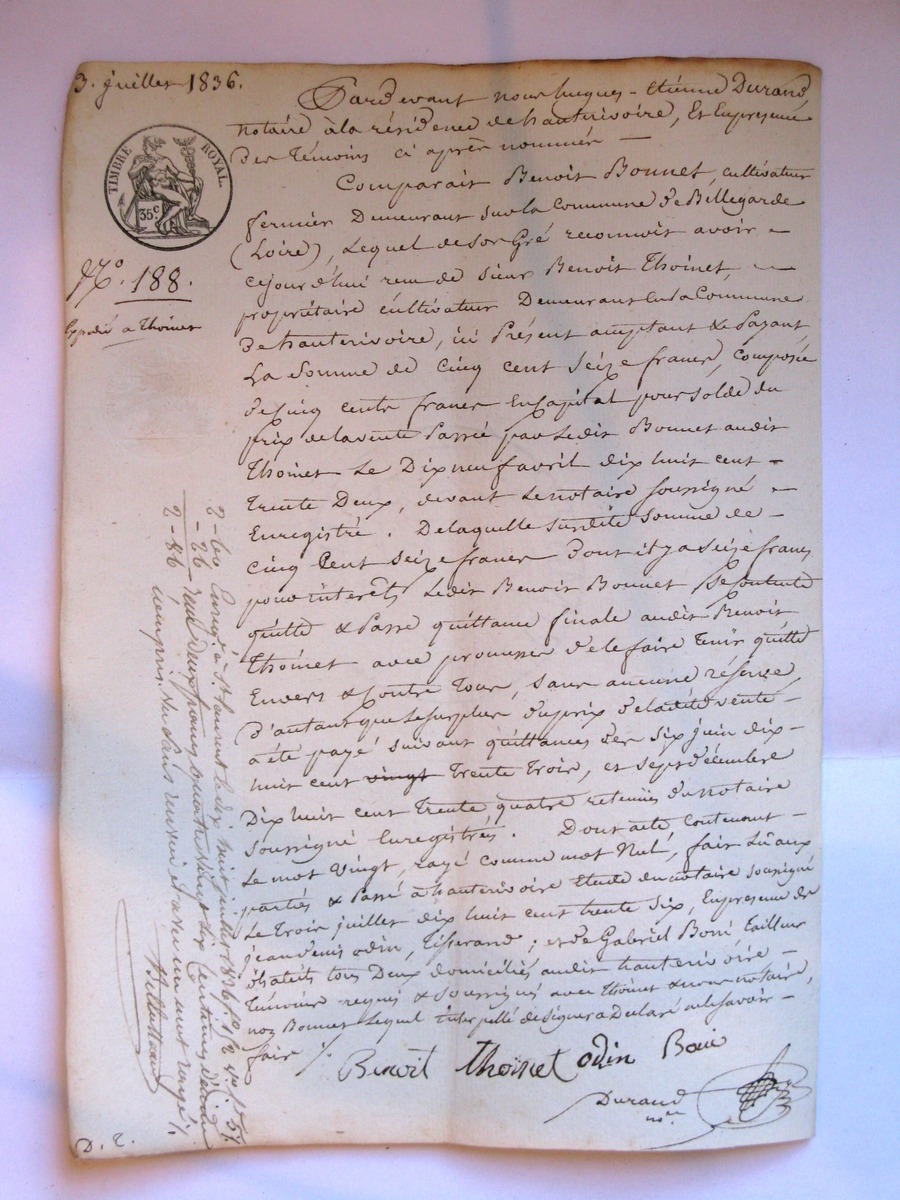 3. juillet 1836.
TIMBRE ROYAL.
35c
N.o 188.
Expédié a Thoinet
Pardevant nous hugues-Etiènne Durand,
notaire à la résidence de hauterivoire, Et En présence
Des Témoins ci après nommés —
Comparait Benoit Bonnet, cultivateur
fermier Demeurant sur la Commune de Bellegarde
(Loire), Lequel de son Gré reconnoit avoir —
cejourd'hui reçu de sieur Benoit Thoinet, —
propriétaire cultivateur Demeurant En la Commune
De hauterivoire, ici Présent acceptant & Payant
La somme de cinq cent seize francs, composée
de cinq cents francs En Capital pour solde du
prix de la vente Passée par Ledit Bonnet audit
Thoinet Le Dix neuf avril dix huit cent —
Trente Deux, devant Le notaire soussigné —
Enregistré. De laquelle susdite somme de —
cinq Cent seize francs Dont il y a seize francs
pour intérêts Ledit Benoit Bonnet se contente
quitte & Passe quittance finale audit Benoit
Thoinet avec promesse de le faire Tenir quitte
Envers & Contre Tous, sans aucune réserve,
D'autant que Le surplus du prix de ladite vente —
a été payé suivant quittances des six juin dix-
huit cent vingt Trente Trois, et sept décembre
Dix huit cent Trente quatre retenues du notaire
soussigné Enregistrés. Dont acte Contenant —
Le mot vingt, rayé comme mot Nul, fait Lû aux
parties & Passé à hauterivoire Etude du notaire soussigné
Le Trois juillet dix huit cent trente six, En présence de
jean denis odin, Tisserand; et de Gabriel Boni Tailleur
d'habits tous Deux domiciliés audit hauterivoire —
Témoins requis & soussignés avec Thoinet & nous notaire,
non Bonnet Lequel interpellé de signer a Déclaré ne le savoir —
fair /.
Benoit Thoinet odin Boni
Durand
no.re
2-60
2-26
2-86
Enreg. à St Laurent le dix huit juillet 1836 fo 12 Vo C. 57.
reçu deux francs quatre vingt six centimes décime
compris.
D. T.